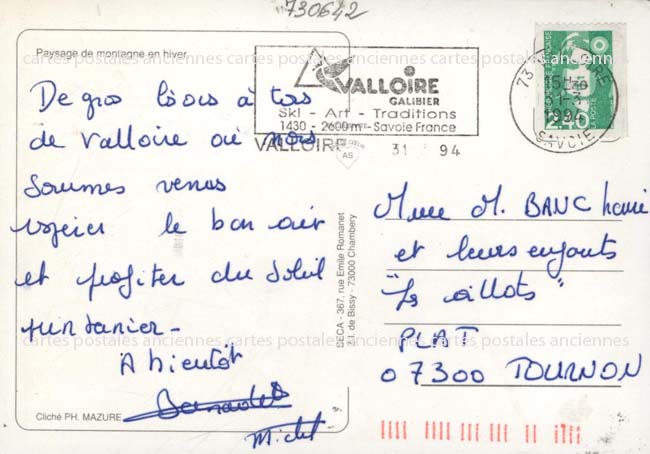 730642
Paysage de montagne en hiver
De gros bisous à tous
de Valloire où nous
sommes venus
respirer le bon air
et profiter du soleil
printanier -
A bientôt
Michel
Cliché PH. MAZURE
SECA - 367, rue Emile Romanet
Z.I. de Bissy - 73000 Chambery
VALLOIRE
GALIBIER
Ski - Art - Traditions
1430 - 2600 m - Savoie France
VALLOIRE 31 94
73 VALLOIRE
15H
1994
SAVOIE
Mme M. BANC
et leurs enfants
"Les oillots"
PLAT
07300 TOURNON
cartes postales anciennes cartes postales anciennes cartes postales anciennes